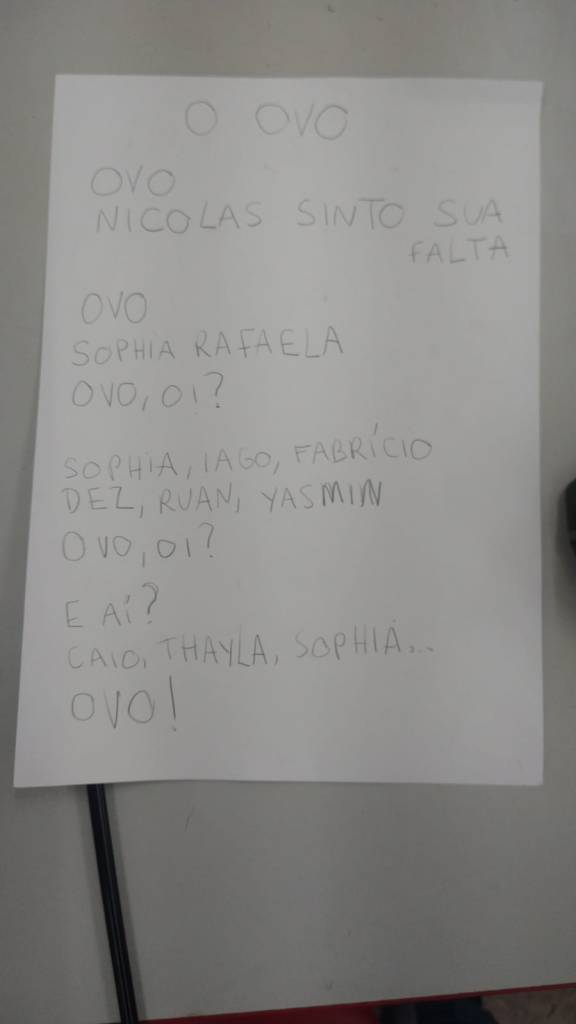 O OVO
OVO
NICOLAS SINTO SUA
FALTA
OVO
SOPHIA RAFAELA
OVO, OI?
SOPHIA, IAGO, FABRÍCIO
DEZ, RUAN, YASMIN
OVO, OI?
E AÍ?
CAIO, THAYLA, SOPHIA...
OVO!